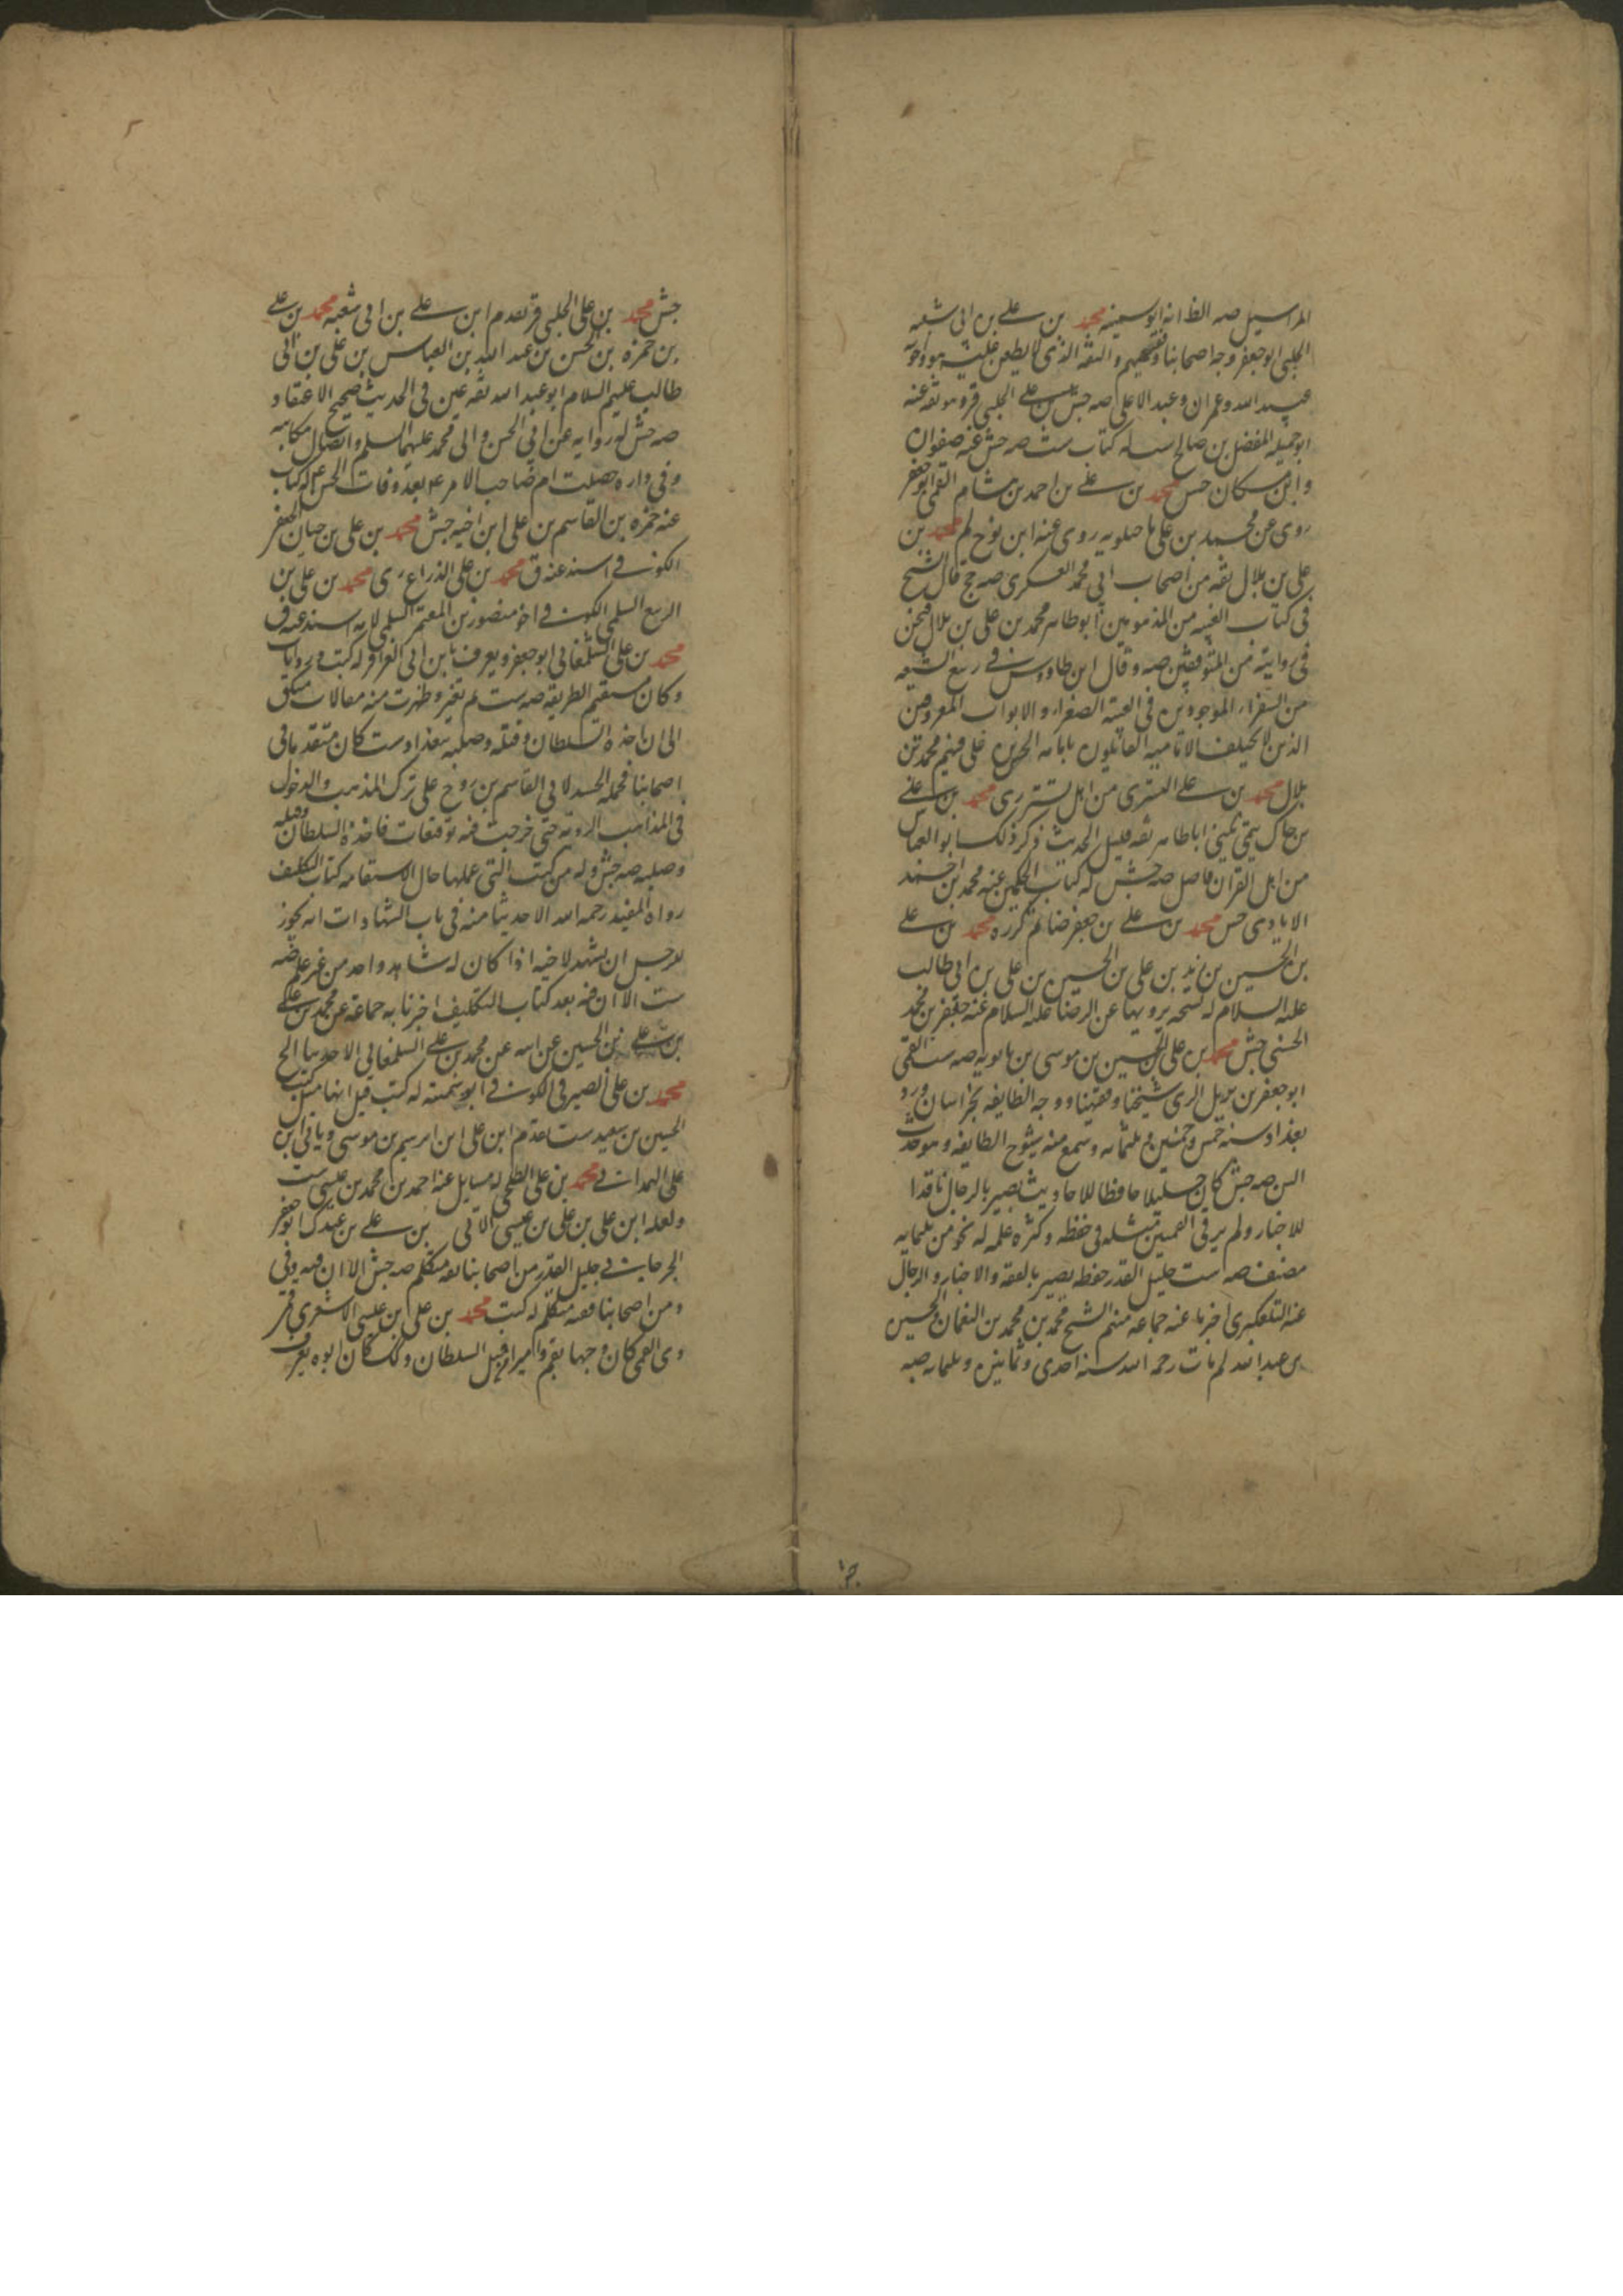 المراسيل صه الظ انه ابو سمينه محمد بن علي بن ابي شعبه
الحلبي ابو جعفر وجه اصحابنا وفقيههم والثقه الذي لا يطعن عليه هو واخوته
عبيد الله وعمران وعبد الاعلى صه جش بن علي الحلبي قر وهو ثقه عنه
ابو جميله المفضل بن صالح له كتاب ست صه جش عنه صفوان
وابن مسكان جش محمد بن علي بن احمد بن هشام القمي ابو جعفر
روى عن محمد بن علي ماجيلويه روى عنه ابن نوح لم محمد بن
علي بن بلال ثقه من اصحاب ابي محمد العسكري صه جخ قال الشيخ
في كتاب الغيبه من المذمومين ابو طاهر محمد بن علي بن بلال فنحن
في روايته من المتوقفين صه وقال ابن طاووس في ربيع الشيعه
من السفراء الموجودين في الغيبة الصغرى والابواب المعروفين
الذين لا يختلف الاماميه القائلون بامامه الحسن بن علي فيهم محمد بن
بلال محمد بن علي التستري من اهل تستر ري محمد بن علي
بن جاك قمي يكنى اباطاهر ثقه قليل الحديث ذكر ذلك ابو العباس
من اهل القران فاضل صه جش له كتاب الحكمين عنه محمد بن احمد
الايادي جش محمد بن علي بن جعفر ضا لم كرره محمد بن علي
بن الحسين بن زيد بن علي بن الحسين بن علي بن ابي طالب
عليه السلام له نسخه يرويها عن الرضا عليه السلام عنه جعفر بن محمد
الحسني جش محمد بن علي بن الحسين بن موسى بن بابويه صه ست القمي
ابو جعفر بن نزيل الري شيخنا وفقيهنا ووجه الطايفه بخراسان ورد
بغداد سنه خمس وخمسين وثلثمائه وسمع منه شيوخ الطايفه وهو حدث
السن صه جش كان جليلا حافظا للاحاديث بصير بالرجال ناقدا
للاخبار ولم ير في القميين مثله في حفظه وكثره علمه له نحو من ثلثمايه
مصنف صه ست جليل القدر حفظه بصير بالفقه والاخبار والرجال
عنه التلعكبري اخبرنا عنه جماعه منهم الشيخ محمد بن محمد بن النعمان والحسين
بن عبد الله لم مات رحمه الله سنه احدى وثمانين وثلثمائه صه
جش محمد بن علي الحلبي قر تقدم ابن علي بن ابي شعبه محمد بن علي
بن حمزه بن الحسن بن عبد الله بن العباس بن علي بن ابي
طالب عليهم السلام ابو عبد الله ثقه عين في الحديث صحيح الاعتقاد
صه جش له روايه عن ابي الحسن وابي محمد عليهما السلم واتصال مكاتبه
وفي داره حصلت ام صاحب الامر ع بعد وفات الحسن ع له كتاب
عنه حمزه بن القاسم بن علي ابن اخيه جش محمد بن علي بن حيان الجعفر
الكوفي اسند عنه ق محمد بن علي الذراع ري محمد بن علي بن
الربيع السلمي الكوفي اخو منصور بن المعتمر السلمي لامه اسند عنه ق
محمد بن علي الشلمغاني ابو جعفر ويعرف بابن ابي العزاقر له كتب وروايات
وكان مستقيم الطريقه صه ست ثم تغير وظهرت منه مقالات منكره
الى ان اخذه السلطان وقتله وصلبه ببغداد ست كان متقدما في
اصحابنا فحمله الحسد لابي القاسم بن روح على ترك المذهب والدخول
في المذاهب الرديه حتى خرجت فيه توقيعات فاخذه السلطان وقتله
وصلبه صه جش وله من كتب التي عملها حال الاستقامه كتاب التكليف
رواه المفيد رحمه الله الا حديثا منه في باب الشهادات انه يجوز
للرجل ان يشهد لاخيه اذا كان له شاهد واحد من غير علم صه
ست الا ان فيه بعد كتاب التكليف اخبرنا به جماعة عن محمد بن علي
بن علي بن الحسين عن ابيه عن محمد بن علي الشلمغاني الا حديثا الخ
محمد بن علي الصيرفي الكوفي ابو سمينه له كتب قيل انها مثل كتب
الحسين بن سعيد ست تقدم ابن علي ابن ابرهيم بن موسى وياتي ابن
علي الهمداني محمد بن علي الطلحي له مسايل عنه احمد بن محمد بن عيسى ست
ولعله ابن علي بن علي بن عيسى الاتي بن علي بن عبدك ابو جعفر
الجرجاني جليل القدر من اصحابنا ثقه متكلم صه جش الا ان فيه وفي
ومن اصحابنا فقه متكلم له كتب محمد بن علي بن عيسى الاشعري قر
دي القمي كان وجها بقم واميرا من قبل السلطان وكذلك كان ابوه يعرف